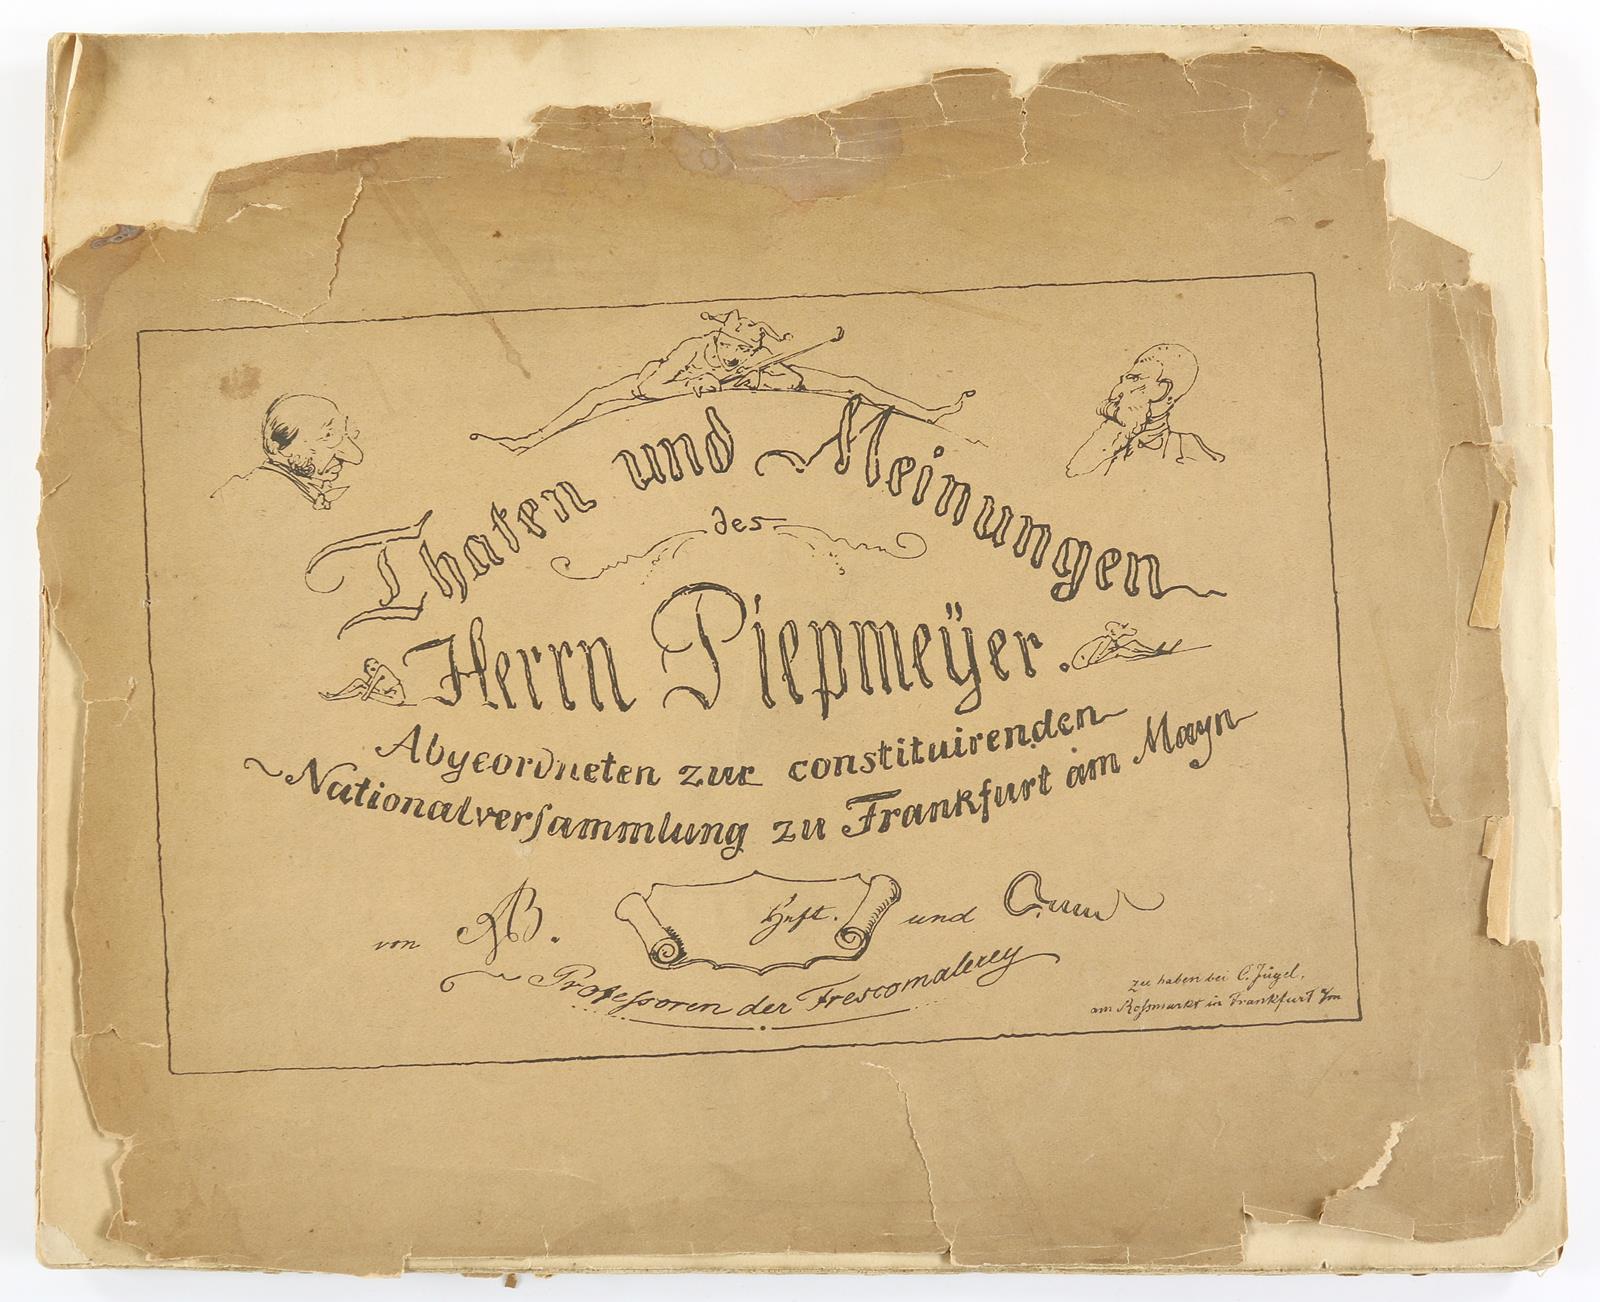 Thaten und Meinungen
des
Herrn Piepmeÿer.
Abgeordneten zur constituirenden
Nationalverſammlung zu Frankfurt am Mayn
von AB. Heft. und
Profeſsoren der Frescomalerey
zu haben bei C. Jügel,
am Roſsmarkt in Frankfurt a/m